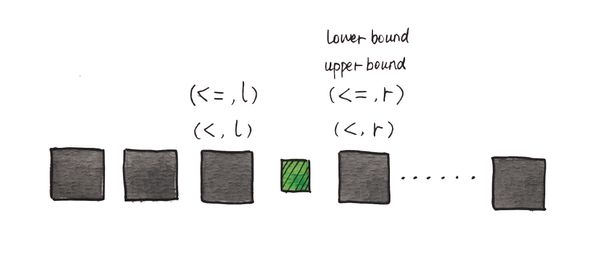 lower bound
upper bound
(<=,l) (<=,r)
(<,l) (<,r)